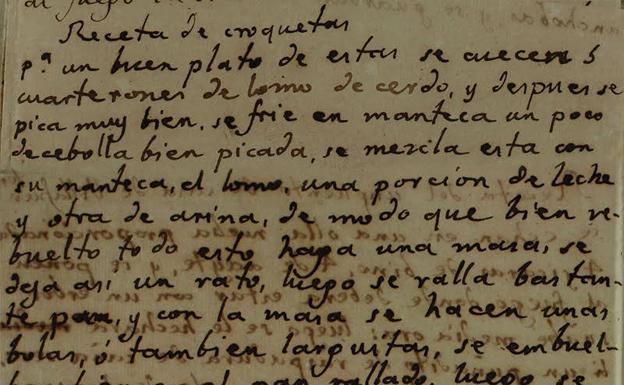 al fuego
Receta de croquetas
pª un buen plato de estas se cuecen 5
cuarterones de lomo de cerdo, y despues se
pica muy bien. se frie en manteca un poco
decebolla bien picada, se mezcla esta con
su manteca, el lomo, una porcion de leche
y otra de arina, de modo que bien re-
buelto todo esto haga una masa, se
deja asi un rato, luego se ralla bastan-
te pan, y con la masa se hacen unas
bolas, ó tambien larguitas, se embuel-
pan rallado, luego se